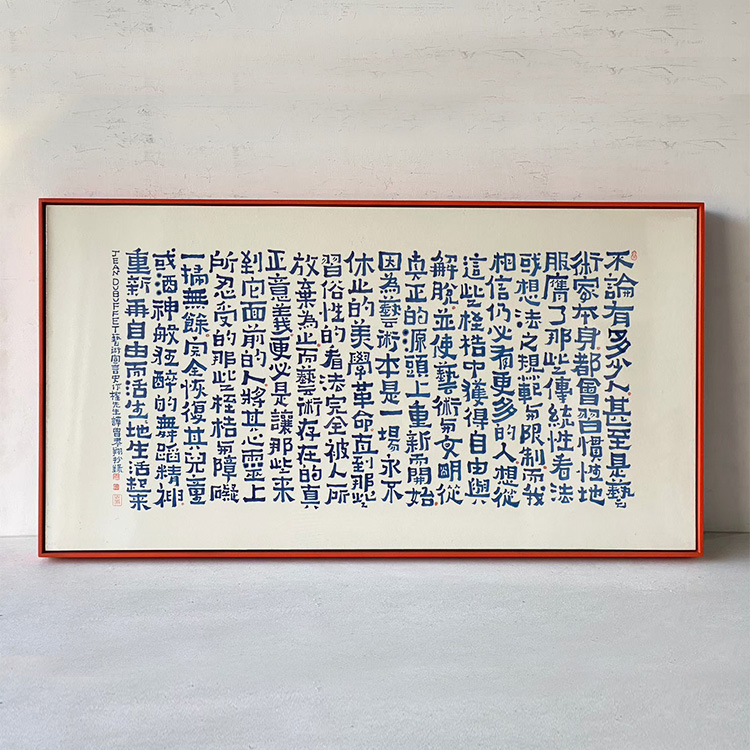 不論有多少人甚至是藝
術家本身都會習慣性地
服膺了那些傳統性看法
或想法之規範與限制而我
相信仍必有更多的人想從
這些桎梏中獲得自由與
解脫並使藝術與文明從
真正的源頭上重新開始
因為藝術本是一場永不
休止的美學革命直到那些
習俗性的看法完全被人所
放棄為止而藝術存在的真
正意義更必是讓那些來
到它面前的人將其心靈上
所忍受的那些桎梏與障礙
一掃無餘完全恢復其兒童
或酒神般狂醉的舞蹈精神
重新再自由而活生地生活起來
JEAN DUBUFFET藝術 言史作 先生譯